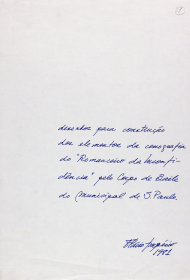 desenhos para construção
dos elementos da cenografia
do "Romanceiro da Inconfi-
dência" pelo Corpo de Baile
do Municipal de S. Paulo
1981